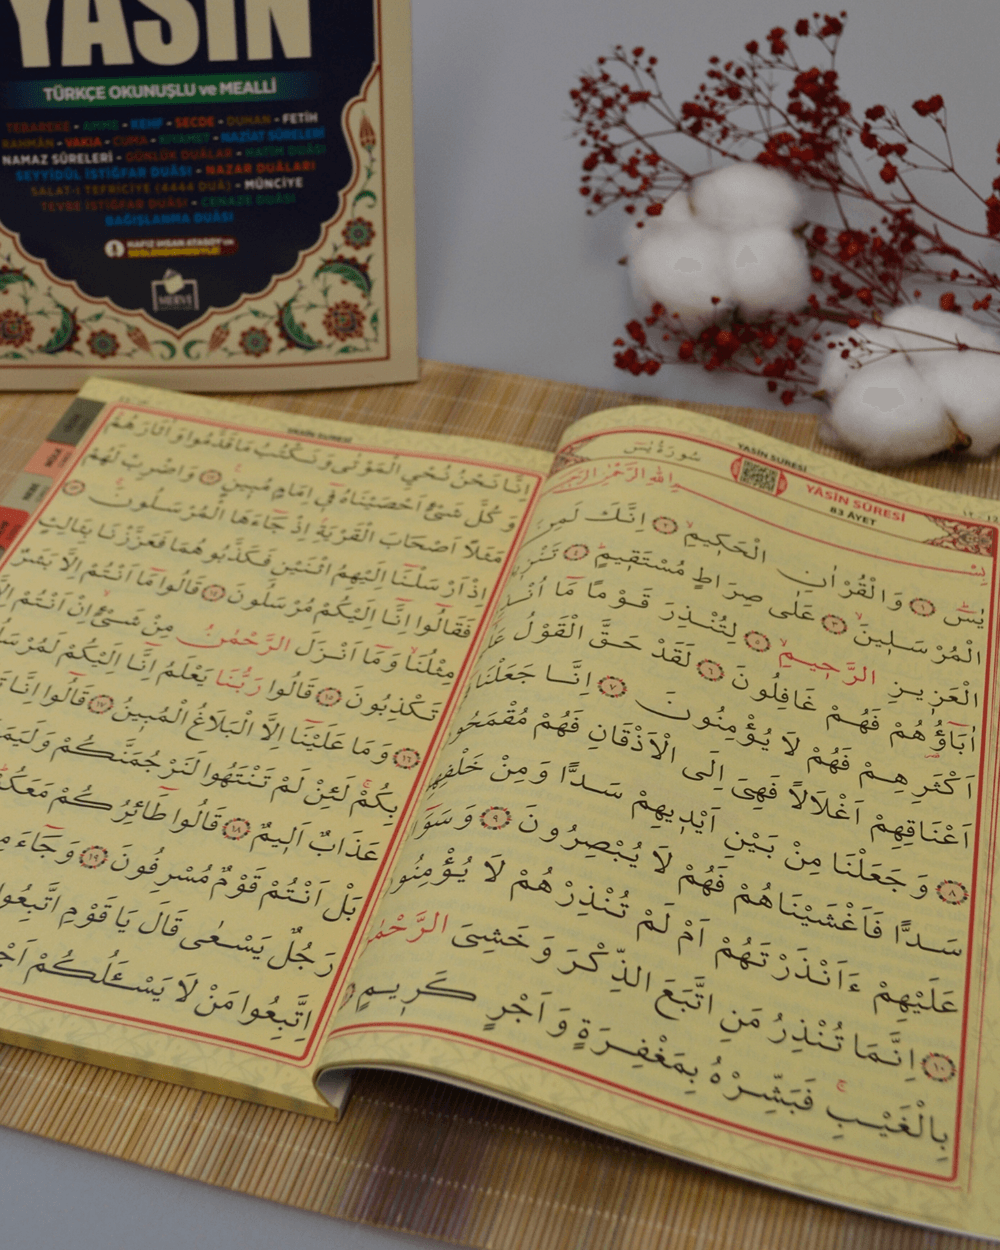 YASİN
TÜRKÇE OKUNUŞLU ve MEALLİ
TEBAREKE - AMME - KEHF - SECDE - DUHAN - FETİH
RAHMÂN - VAKIA - CUMA - KIYAMET - NAZİAT SÛRELERİ
NAMAZ SÛRELERİ - GÜNLÜK DUÂLAR - HATİM DUÂSI
SEYYİDÜL İSTİĞFAR DUÂSI - NAZAR DUÂLARI
SALAT-I TEFRİCİYE (4444 DUÂ) - MÜNCİYE
TEVBE İSTİĞFAR DUÂSI - CENAZE DUÂSI
BAĞIŞLANMA DUÂSI
HAFIZ İHSAN ATASOY'un
SESLENDİRMESİYLE
MERVE
YASİN SURESİ
سُورَةُ يٰسٓ
YÂSİN SÛRESİ
83 ÂYET
بِسْمِ اللّٰهِ الرَّحْمٰنِ الرَّحِيمِ
يٰسٓ ﴿١﴾ وَالْقُرْاٰنِ الْحَكِيمِ ﴿٢﴾ اِنَّكَ لَمِنَ
الْمُرْسَلِينَ ﴿٣﴾ عَلٰى صِرَاطٍ مُسْتَقِيمٍ ﴿٤﴾
الْعَزِيزِ الرَّحِيمِ ﴿٥﴾ لِتُنْذِرَ قَوْمًا مَٓا
اٰبَٓاؤُهُمْ فَهُمْ غَافِلُونَ ﴿٦﴾ لَقَدْ حَقَّ الْقَوْلُ
اَكْثَرِهِمْ فَهُمْ لَا يُؤْمِنُونَ ﴿٧﴾ اِنَّا جَعَلْنَا
اَعْنَاقِهِمْ اَغْلَالًا فَهِىَ اِلَى الْاَذْقَانِ فَهُمْ مُقْمَحُونَ
﴿٨﴾ وَجَعَلْنَا مِنْ بَيْنِ اَيْدِيهِمْ سَدًّا وَمِنْ خَلْفِهِمْ
سَدًّا فَاَغْشَيْنَاهُمْ فَهُمْ لَا يُبْصِرُونَ ﴿٩﴾ وَسَوَٓاءٌ
عَلَيْهِمْ ءَاَنْذَرْتَهُمْ اَمْ لَمْ تُنْذِرْهُمْ لَا يُؤْمِنُونَ
﴿١٠﴾ اِنَّمَا تُنْذِرُ مَنِ اتَّبَعَ الذِّكْرَ وَخَشِىَ الرَّحْمٰنَ
بِالْغَيْبِ فَبَشِّرْهُ بِمَغْفِرَةٍ وَاَجْرٍ كَرِيمٍ
YASİN SURESİ
اِنَّا نَحْنُ نُحْيِ الْمَوْتٰى وَنَكْتُبُ مَا قَدَّمُوا وَاٰثَارَهُمْ
وَكُلَّ شَىْءٍ اَحْصَيْنَاهُ فِٓى اِمَامٍ مُبِينٍ ﴿١٢﴾ وَاضْرِبْ لَهُمْ
مَثَلًا اَصْحَابَ الْقَرْيَةِ اِذْ جَٓاءَهَا الْمُرْسَلُونَ ﴿١٣﴾
اِذْ اَرْسَلْنَٓا اِلَيْهِمُ اثْنَيْنِ فَكَذَّبُوهُمَا فَعَزَّزْنَا بِثَالِثٍ
فَقَالُٓوا اِنَّٓا اِلَيْكُمْ مُرْسَلُونَ ﴿١٤﴾ قَالُوا مَٓا اَنْتُمْ اِلَّا بَشَرٌ
مِثْلُنَا وَمَٓا اَنْزَلَ الرَّحْمٰنُ مِنْ شَىْءٍ اِنْ اَنْتُمْ اِلَّا
تَكْذِبُونَ ﴿١٥﴾ قَالُوا رَبُّنَا يَعْلَمُ اِنَّٓا اِلَيْكُمْ لَمُرْسَلُونَ
﴿١٦﴾ وَمَا عَلَيْنَٓا اِلَّا الْبَلَاغُ الْمُبِينُ ﴿١٧﴾ قَالُٓوا اِنَّا
بِكُمْ لَئِنْ لَمْ تَنْتَهُوا لَنَرْجُمَنَّكُمْ
عَذَابٌ اَلِيمٌ ﴿١٨﴾ قَالُوا طَٓائِرُكُمْ مَعَكُمْ
بَلْ اَنْتُمْ قَوْمٌ مُسْرِفُونَ ﴿١٩﴾ وَجَٓاءَ
رَجُلٌ يَسْعٰى قَالَ يَا قَوْمِ اتَّبِعُوا
اِتَّبِعُوا مَنْ لَا يَسْـَٔلُكُمْ